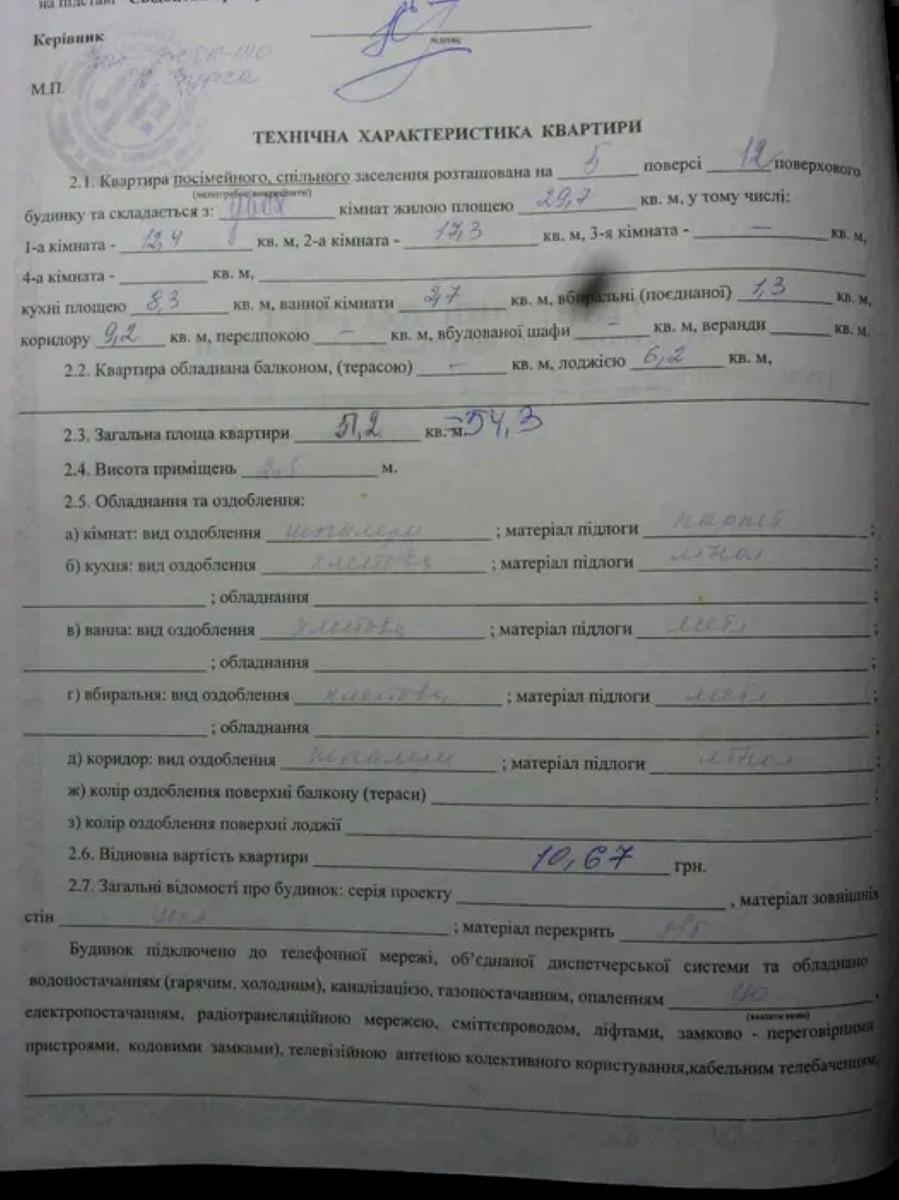 на підставі
Керівник
підпис
М.П.
ТЕХНІЧНА ХАРАКТЕРИСТИКА КВАРТИРИ
2.1. Квартира посімейного, спільного заселення розташована на 5 поверсі 12 поверхового
(непотрібне викреслити)
будинку та складається з: двох кімнат жилою площею 29,7 кв. м, у тому числі:
1-а кімната - 12,4 кв. м, 2-а кімната - 17,3 кв. м, 3-я кімната - — кв. м,
4-а кімната - кв. м,
кухні площею 8,3 кв. м, ванної кімнати 2,7 кв. м, вбиральні (поєднаної) 1,3 кв. м,
коридору 9,2 кв. м, передпокою – кв. м, вбудованої шафи – кв. м, веранди кв. м.
2.2. Квартира обладнана балконом, (терасою) – кв. м, лоджією 6,2 кв. м,
2.3. Загальна площа квартири 51,2 кв. м. 54,3
2.4. Висота приміщень 2,5 м.
2.5. Обладнання та оздоблення:
а) кімнат: вид оздоблення шпалери ; матеріал підлоги паркет ;
б) кухня: вид оздоблення ; матеріал підлоги лінол ;
; обладнання ;
в) ванна: вид оздоблення ; матеріал підлоги ;
; обладнання ;
г) вбиральня: вид оздоблення ; матеріал підлоги ;
; обладнання ;
д) коридор: вид оздоблення шпалери ; матеріал підлоги лінол ;
ж) колір оздоблення поверхні балкону (тераси) ;
з) колір оздоблення поверхні лоджії .
2.6. Відновна вартість квартири 10,67 грн.
2.7. Загальні відомості про будинок: серія проекту , матеріал зовнішніх
стін ; матеріал перекрить
Будинок підключено до телефонної мережі, об’єднаної диспетчерської системи та обладнано
водопостачанням (гарячим, холодним), каналізацією, газопостачанням, опаленням ,
(вказати яким)
електропостачанням, радіотрансляційною мережею, сміттєпроводом, ліфтами, замково - переговірними
пристроями, кодовими замками), телевізійною антеною колективного користування,кабельним телебаченням,